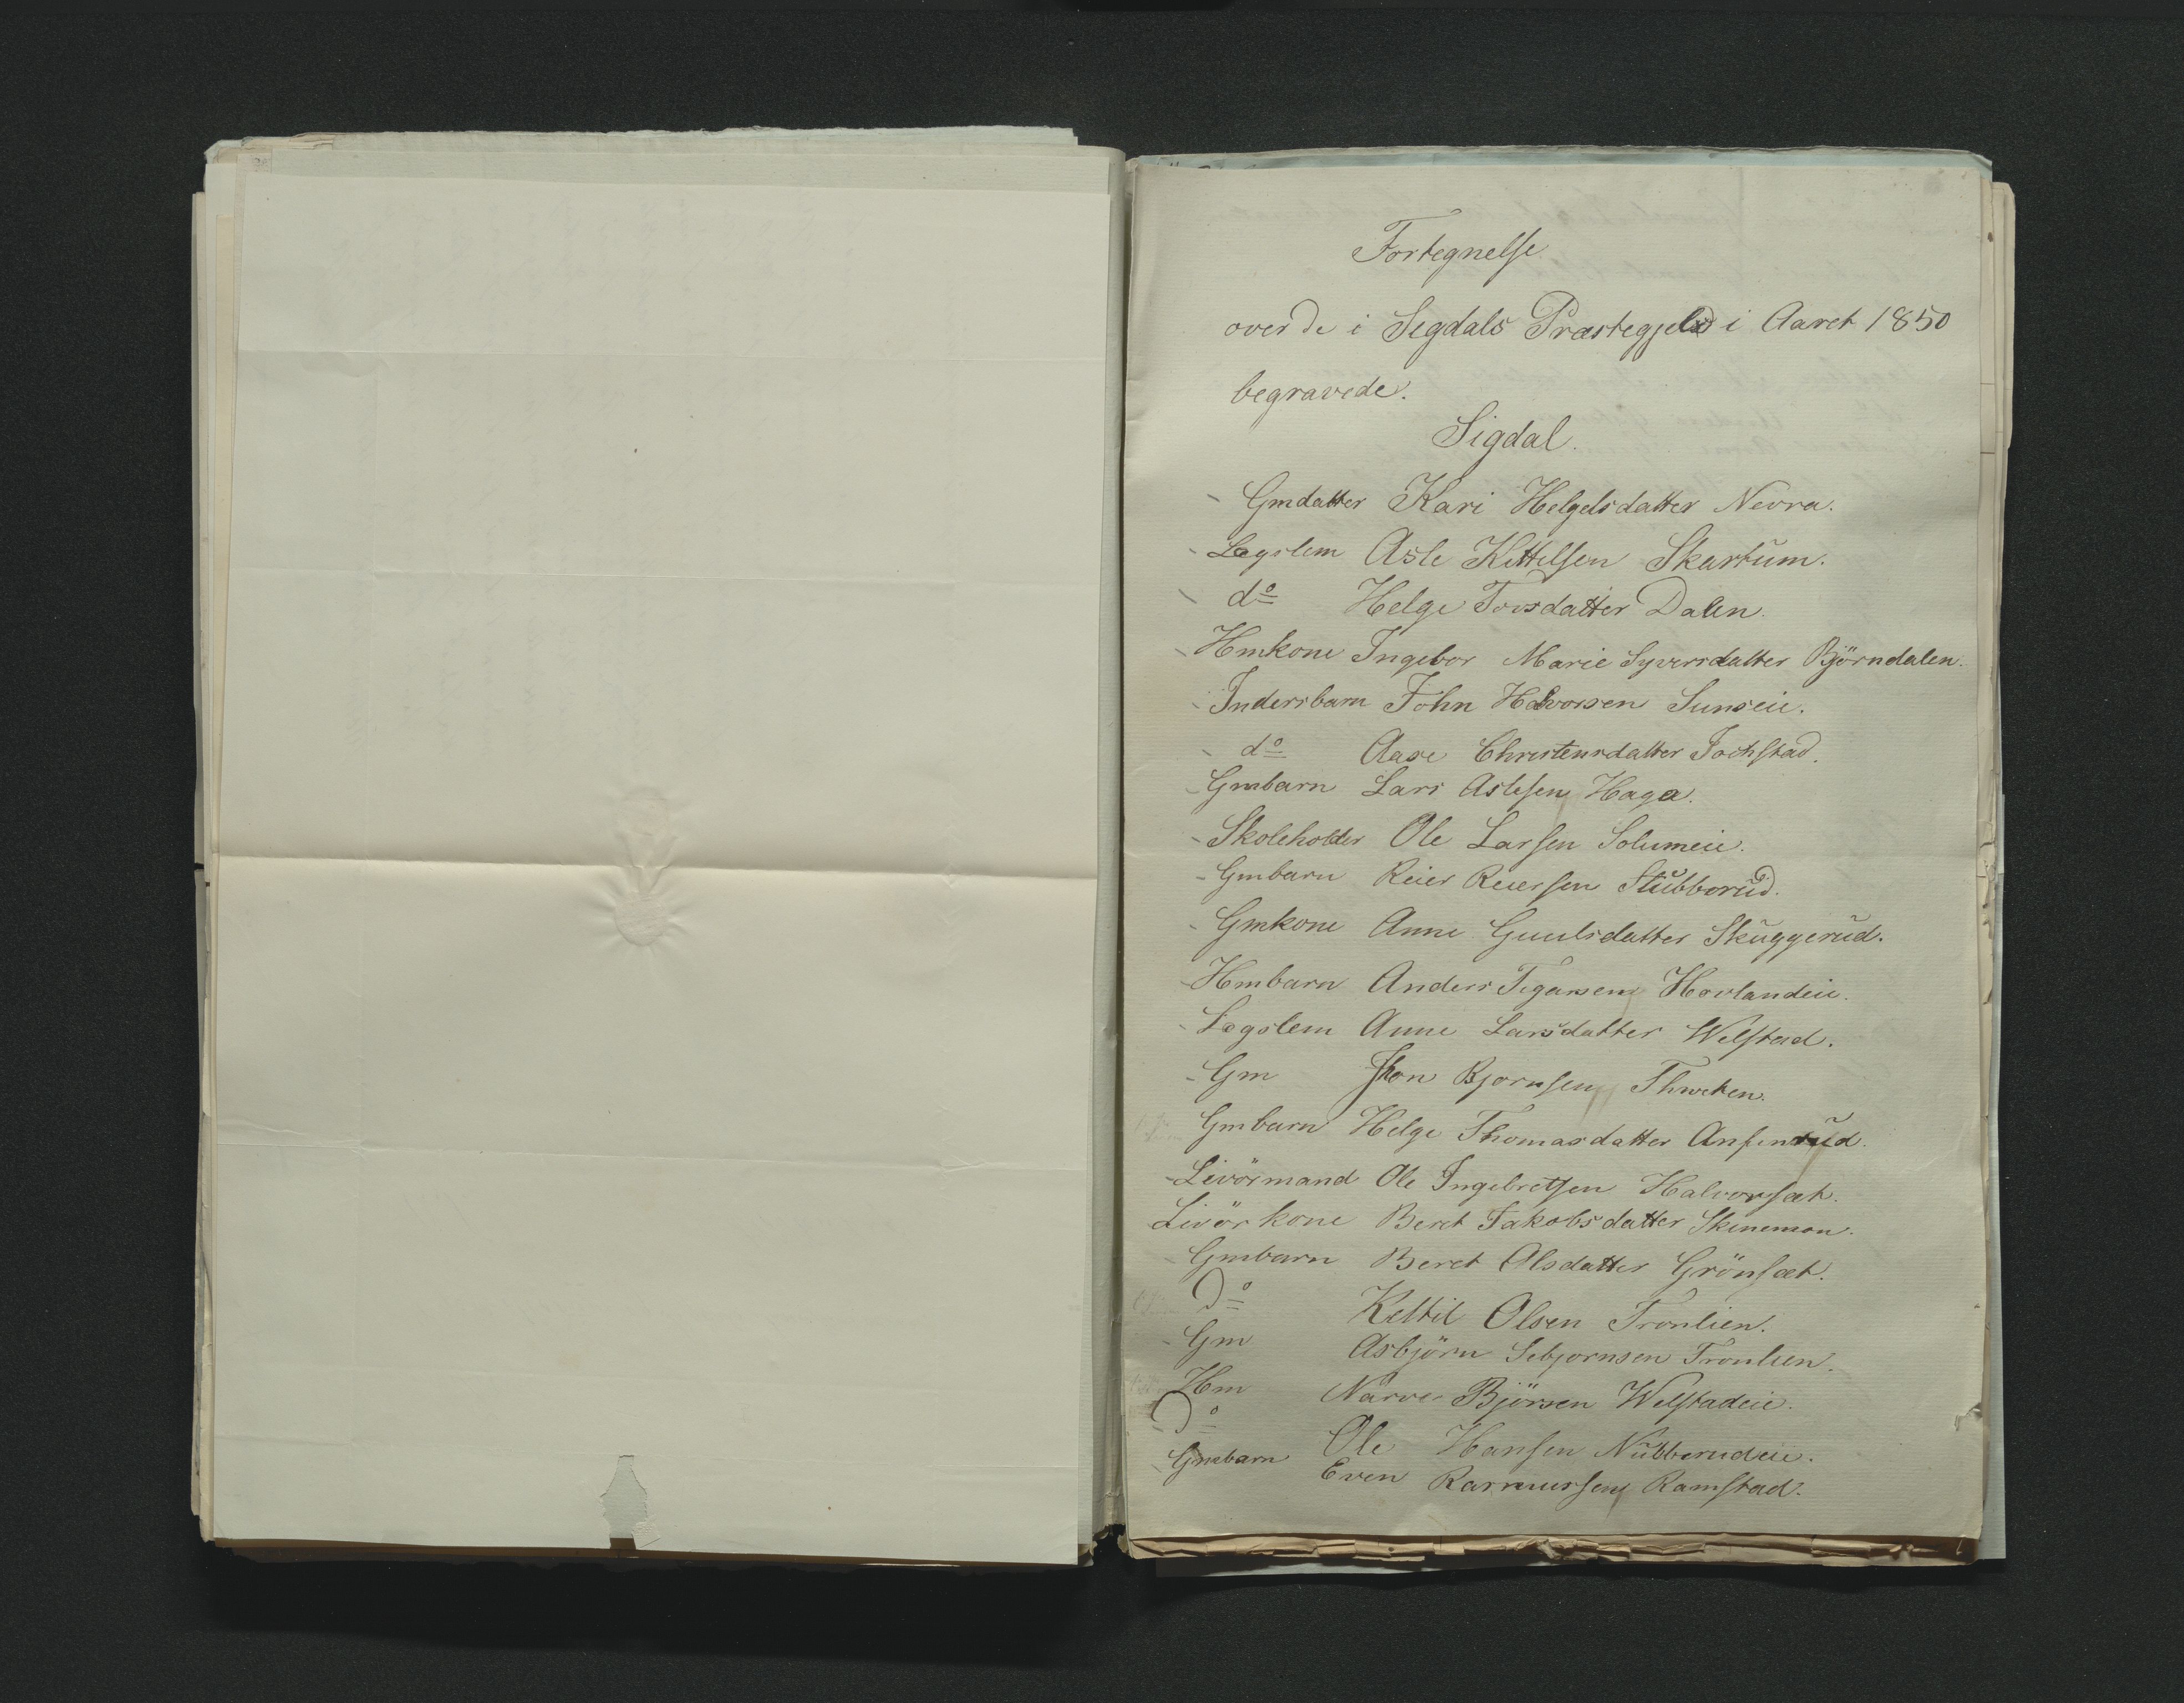 Fortegnelse
over de i Segdals Præstegjeld i Aaret 1850
begravede.
Sigdal.
Gmdatter Kari Helgelsdatter Nevra.
Lægslem Asle Kittelsen Skartum.
do Helge Torsdatter Dalen.
Hmkone Ingebor Marie Syversdatter Björndalen.
Inderstbarn John Halvorsen Sunseie.
do Aase Christensdatter Tochstad.
Gmbarn Lars Aslesen Haga.
Skoleholder Ole Larsen Solumeie.
Gmbarn Reier Reiersen Stubberud.
Gmkone Anne Guulsdatter Skuggerud.
Hmbarn Anders Hovlandeie.
Lægslem Anne Larsdatter Welstad.
Gm Jhon Bjornsen Thveten.
Gmbarn Helge Thomasdatter Anfinrud.
Livörmand Ole Ingebretsen Halvorsæt.
Livörkone Beret Jakobsdatter Skinemon.
Gmbarn Beret Olsdatter Grönsæt.
Do Kettil Olsen Fronlien.
Gm Asbjörn Sebjornsen Fronlien.
Hm Narve Björsen Welstadeie.
Do Ole Hansen Nubberudeie.
Gmbarn Even Rasmussen Ramstad.